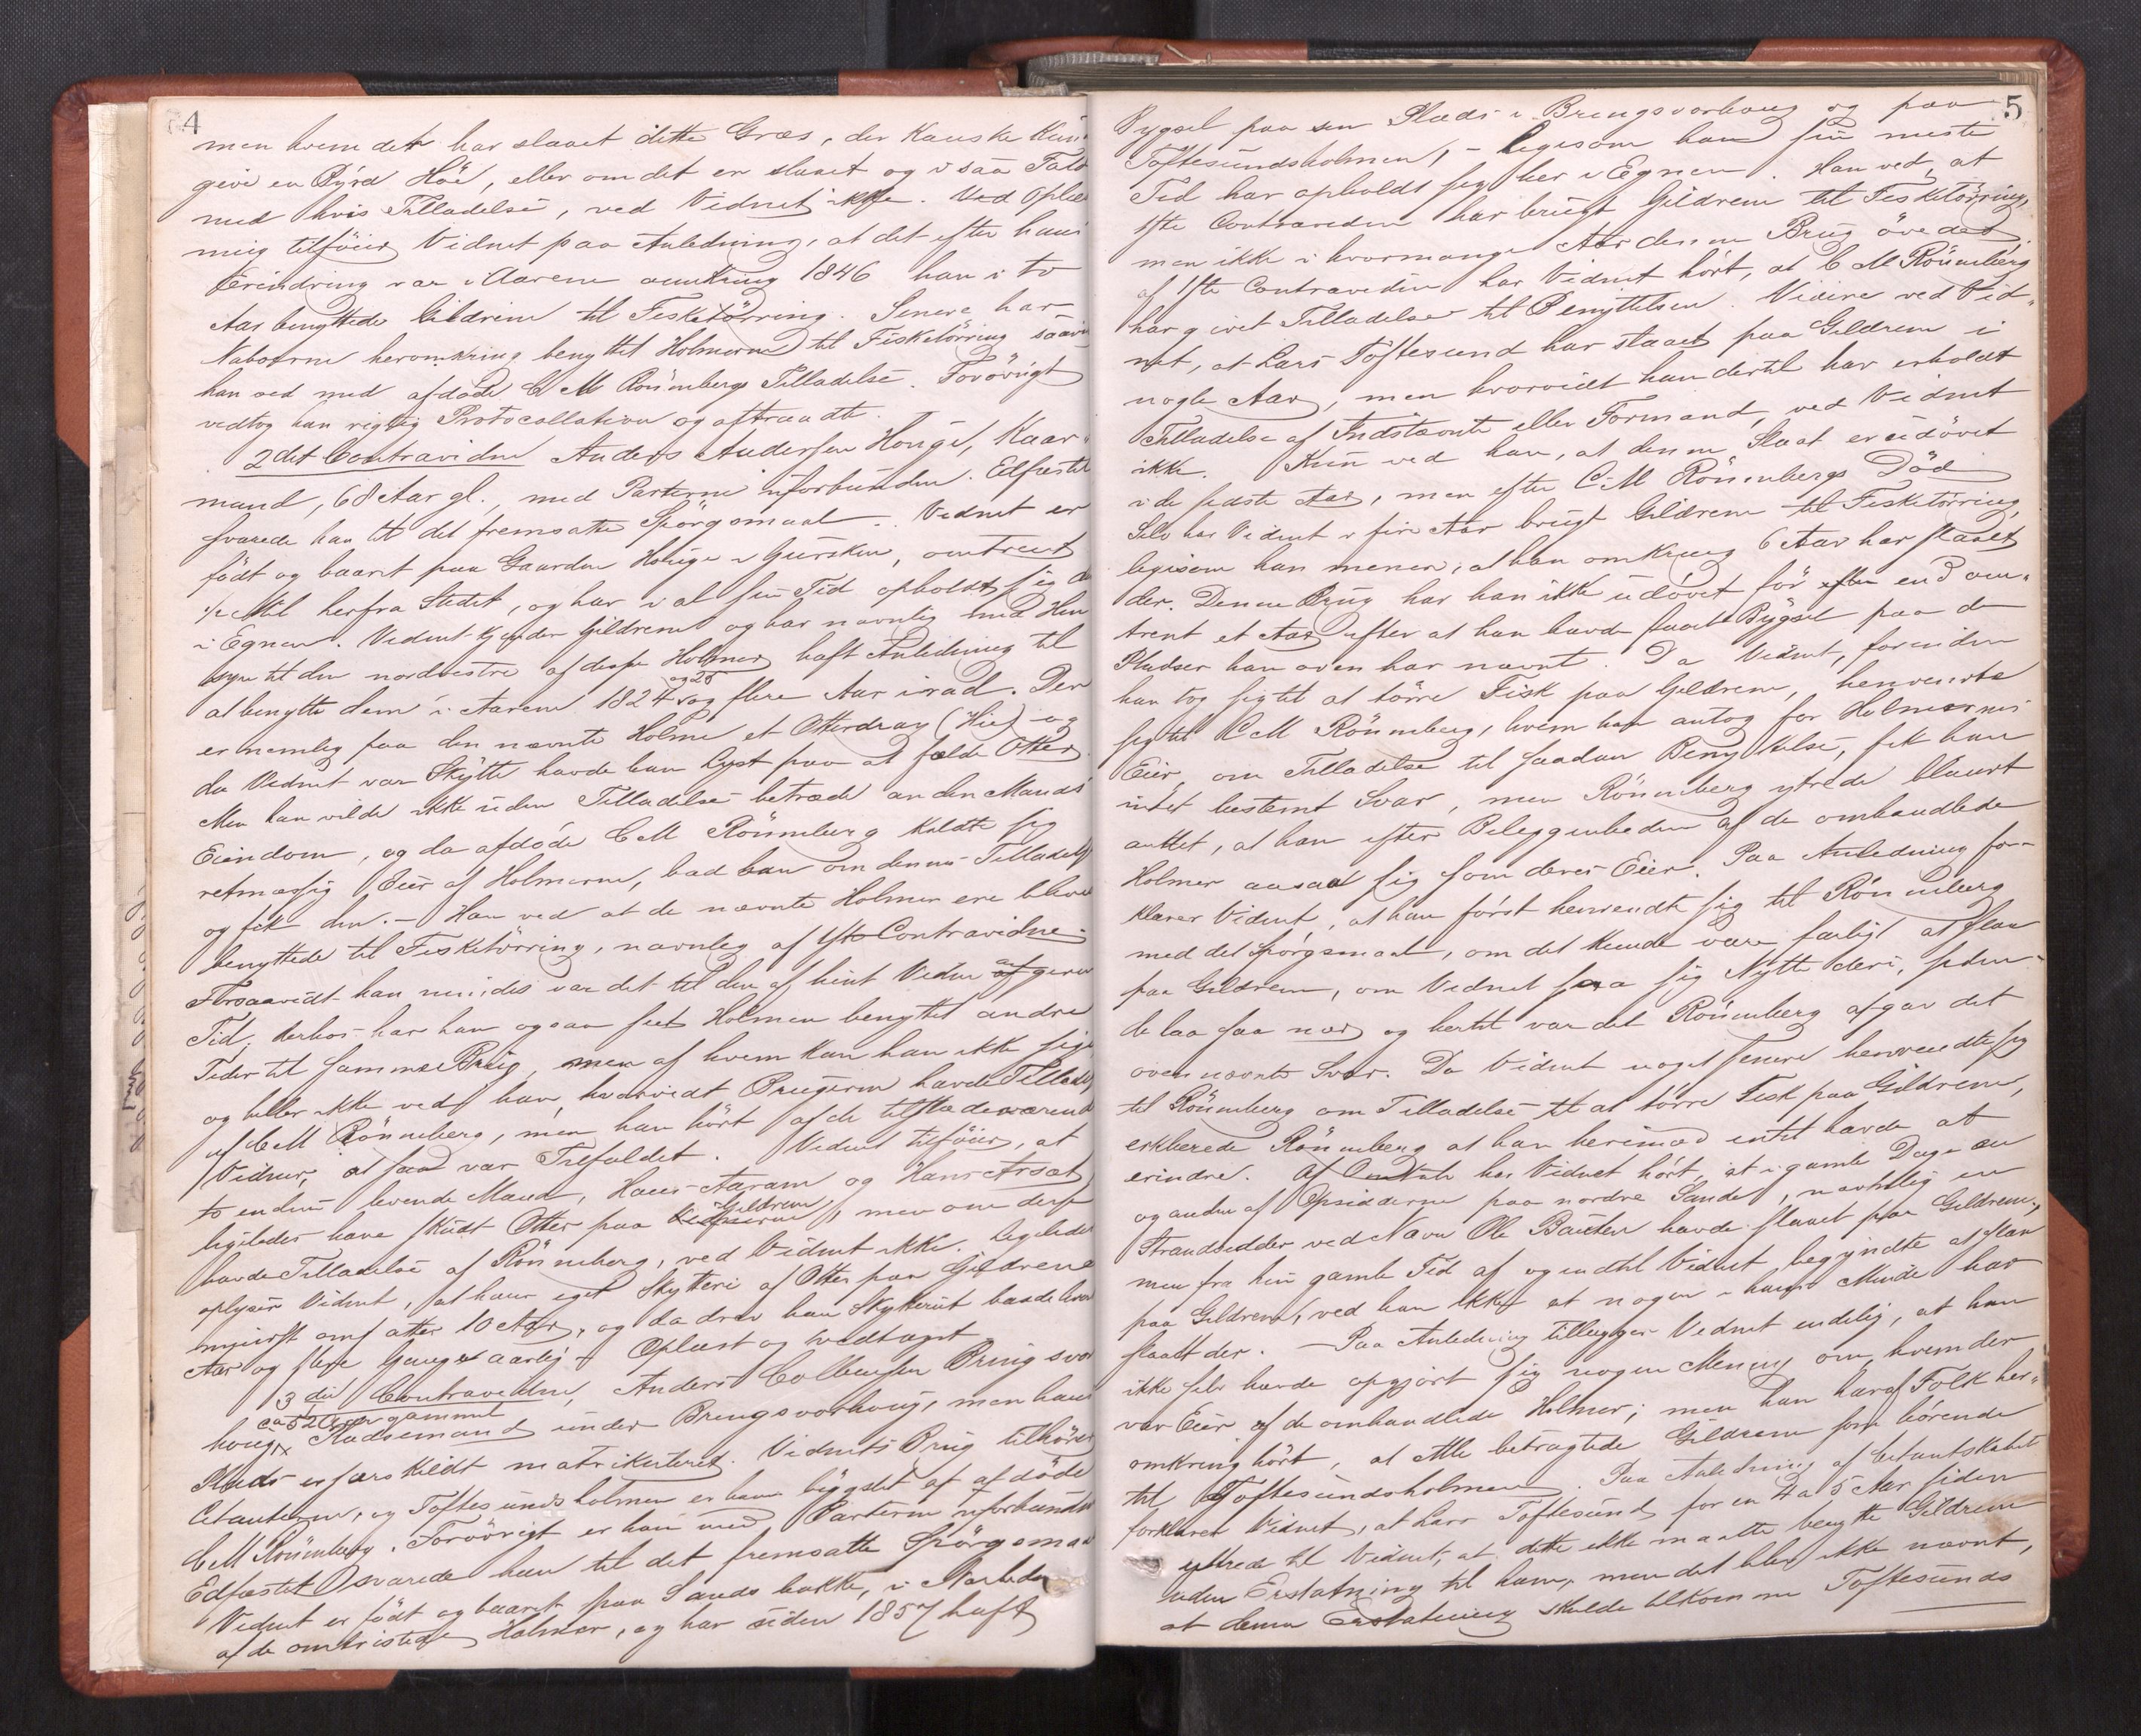 4
men hvem det har slaaet dette Græs, der kanske kun
give en Byrd Höe, eller om det er slaaet og i saa Fald
med hvis Tilladelse, ved Vidnet ikke. Ved Oplæs
ning tilföier Vidnet paa Anledning, at det efter hans
Erindring var i Aarene omkring 1846 han i to
Aar benyttede Gildrene til Fisketörring. Senere har
Naboerne heromkring benyttet Holmerne til Fisketörring saavidt
han ved med afdöde C M Rönnebergs Tilladelse. Forövrigt
vedtog han rigtig Protocollation og aftraadte.
2det Contravidne Anders Andersen Hougé, Kaar-
mand, 68 Aar gl., med Parterne uforbunden. Edfæstet
svarede han til det fremsatte Spörgsmaal. Vidnet er
födt og baaret paa Gaarden Houge i Gursken, omtrent
½ Mil herfra Stedet, og har i al sin Tid opholdt sig der
i Egnen. Vidnet kjender Gildrene og har navnlig med Hen
syn til den nordvestre af disse Holmer haft Anledning til
at benytte dem i Aarene 1824 og 25 og flere Aar i rad. Der
er nemlig paa den nævnte Holme et Otterdrag (Hie) og
da Vidnet var Skytte havde han Lyst paa at fælde Otter.
Men han vilde ikke uden Tilladelse betræde anden Mands
Eiendom, og da afdöde C M Rönneberg kaldte sig
retmæssig Eier af Holmerne, bad han om dennes Tilladelse
og fik den. - Han ved at de nævnte Holmer ere blevne
benyttede til Fisketörring, navnlig af 1ste Contravidne.
Forsaavidt han mindes var det til den af hint Vidne angivne
Tid; derhos har han ogsaa seet Holmen benyttet andre
Tider til samme Brug, men af hvem kan han ikke sige
og heller ikke ved han, hvorvidt Brugerne havde Tilladelse
af C M Rönneberg, men han hört af de tilstedeværende
Vidner, at saa var Tilfældet. Vidnet tilföier, at
to endnu levende Mænd, Hans Aaram og Hans Arsæt
ligeledes have skudt Otter paa Gildrene, men om disse
havde Tilladelse af Rönneberg, ved Vidnet ikke. Ligeledes
oplyser Vidnet, at hans eget Skytteri af Otter paa Gildrene
 otte 10 Aar, og da drev han Skytteriet baade hvert
Aar og flere Gange aarlig. - Oplæst og vedtaget.
3die Contravidne, Anders Colbensen Bringsvor
houg, ca 52 Aar gammel Pladsemand under Bringsvorhoug, men hans
Plads er særskildt matrikuleret. Vidnets Brug tilhörer
Citanterne, og Toftesundsholmen er ham bygslet af afdöde
C M Rönneberg. Forövrigt er han med Parterne uforbunden
Edfæstet svarede han til det fremsatte Spörgsmaal
Vidnet er födt og baaret paa Sands bakke, i Nærheden
af de omtvistede Holmer, og har siden 1857 haft
5
Bygsel paa sin Plads i Bringsvorhoug og paa
Toftesundsholmen, - ligesom han sin meste
Tid har opholdt sig her i Egnen. Han ved, at
1ste Contravidne har brugt Gildrene til Fisketörring,
men ikke i hvormange Aar denne Brug övedes
af 1ste Contravidne har Vidnet hört, at C M Rönneberg
har givet Tilladelse til Benyttelsen. Videre ved Vid-
net, at Lars Toftesund har slaaet paa Gildrene i
nogle Aar, men hvorvidt han dertil har erholdt
Tilladelse af Indstævnte eller Formand, ved Vidnet
ikke. Kun ved han, at denne Slaat er udövet
i de sidste Aar, men efter C M Rönnebergs Död
Selv har Vidnet i fire Aar brugt Gildrene til Fisketörring,
ligesom han mener, at han omkring 6 Aar har slaaet
der. Denne Brug har han ikke udövet för end om-
trent et Aar efter at han havde faaet Bygsel paa de
Pladser han oven har nævnt. Da Vidnet, forinden
han tog sig til at törre Fisk paa Gildrene, henvendte
sig til C M Rönneberg, hvem han antog for Holmernes
Eier, om Tilladelse til saadan Benyttelse, fik han
intet bestemt Svar, men Rönneberg ytrede blandt
andet, at han efter Beliggenheden af de omhandlede
Holmer ansaa sig som deres Eier. Paa Anledning for-
klarer Vidnet, at han först henvendte sig til Rönneberg
med det Spörgsmaal, om det kunde være farligt at slaa
paa Gildrene, om Vidnet saa sig Nytte deri, siden
de laa saa nær og hertil var det Rönneberg afgav det
ovennævnte Svar. Da Vidnet noget senere henvendte sig
til Rönneberg om Tilladelse til at törre Fisk paa Gildrene,
erklærede Rönneberg at han herimod intet havde at
erindre. Af Omtale har Vidnet hört, at i gamle Dage en
og anden af Opsidderne paa nordre Sande, navnlig en
Strandsidder ved Navn Ole Bauten havde slaaet paa Gildrene,
men fra hin gamle Tid af og indtil Vidnet begyndte at slaa
paa Gildrene, ved han ikke at nogen i hans Minde har
slaaet der. - Paa Anledning tillægger Vidnet endelig, at han
ikke selv havde opgjort sig nogen Mening om, hvem der
var Eier af de omhandlede Holmer; men han har af Folk her-
omkring hört, at Alle betragtede Gildrene som hörende
til Toftesundsholmen. Paa Anledning af Citantskabet
forklarer Vidnet, at Lars Toftesund for en 4 a 5 Aar siden
yttrede til Vidnet, at dette ikke maatte benytte Gildrene
uden Erstatning til ham, men det blev ikke nævnt,
at denne Erstatning skulde tilkomme Toftesunds